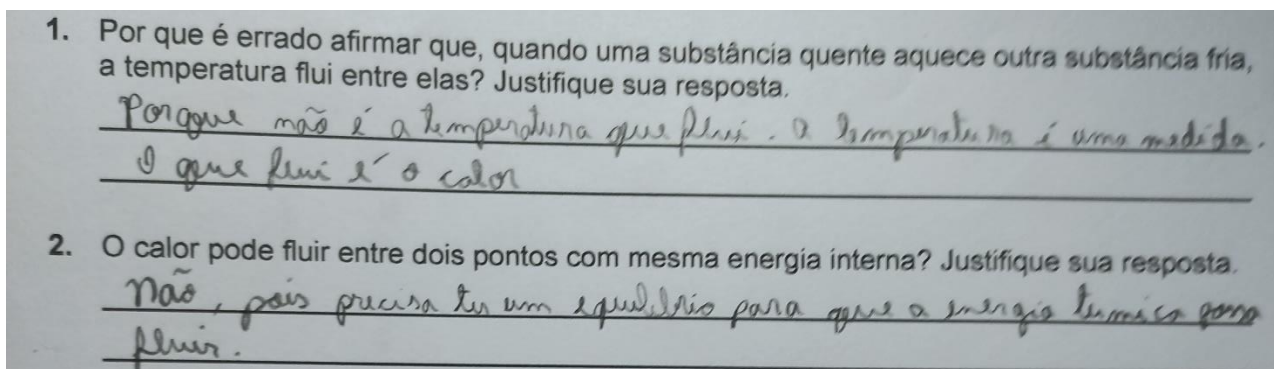 1. Por que é errado afirmar que, quando uma substância quente aquece outra substância fria,
a temperatura flui entre elas? Justifique sua resposta.
Porque não é a temperatura que flui. a temperatura é uma medida.
O que flui é o calor
2. O calor pode fluir entre dois pontos com mesma energia interna? Justifique sua resposta.
não, pois precisa ter um equilibrio para que a energia termica possa
fluir.